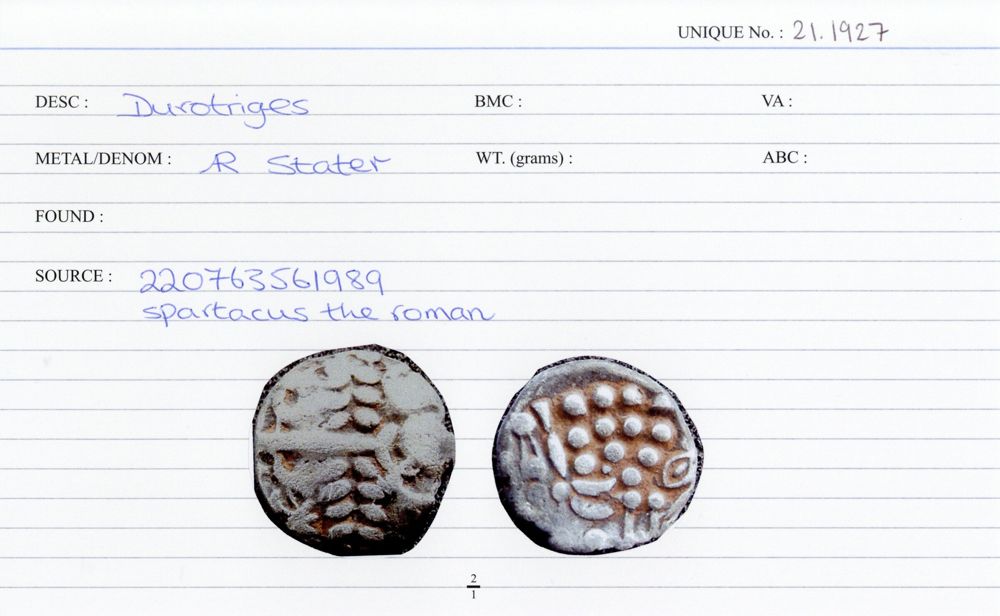 UNIQUE No. : 21.1927
DESC : Durotriges BMC : VA :
METAL/DENOM : AR Stater WT. (grams) : ABC :
FOUND :
SOURCE : 220763561989
spartacus the roman
2
1